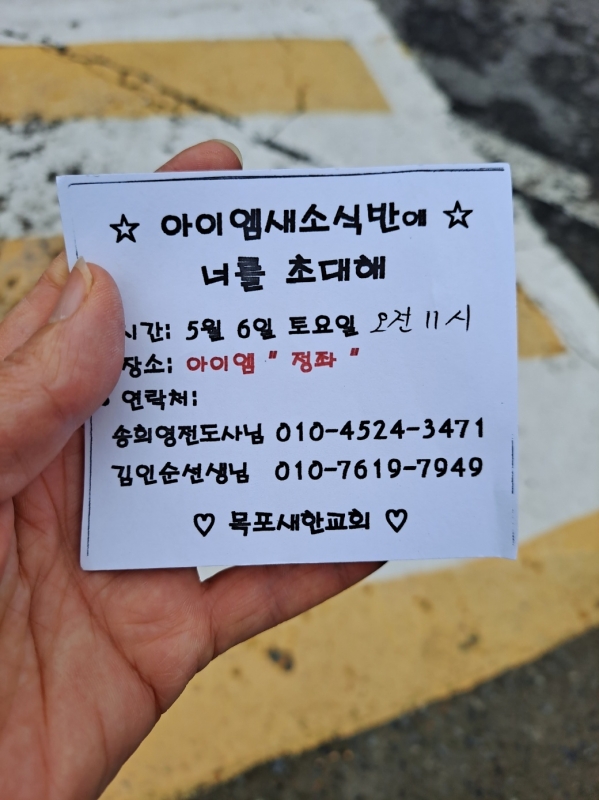 ☆ 아이엠새소식반에 ☆
너를 초대해
시간: 5월 6일 토요일 오전 11시
장소: 아이엠 " 정좌 "
연락처:
송희영전도사님 010-4524-3471
김인순선생님 010-7619-7949
♡ 목포새한교회 ♡